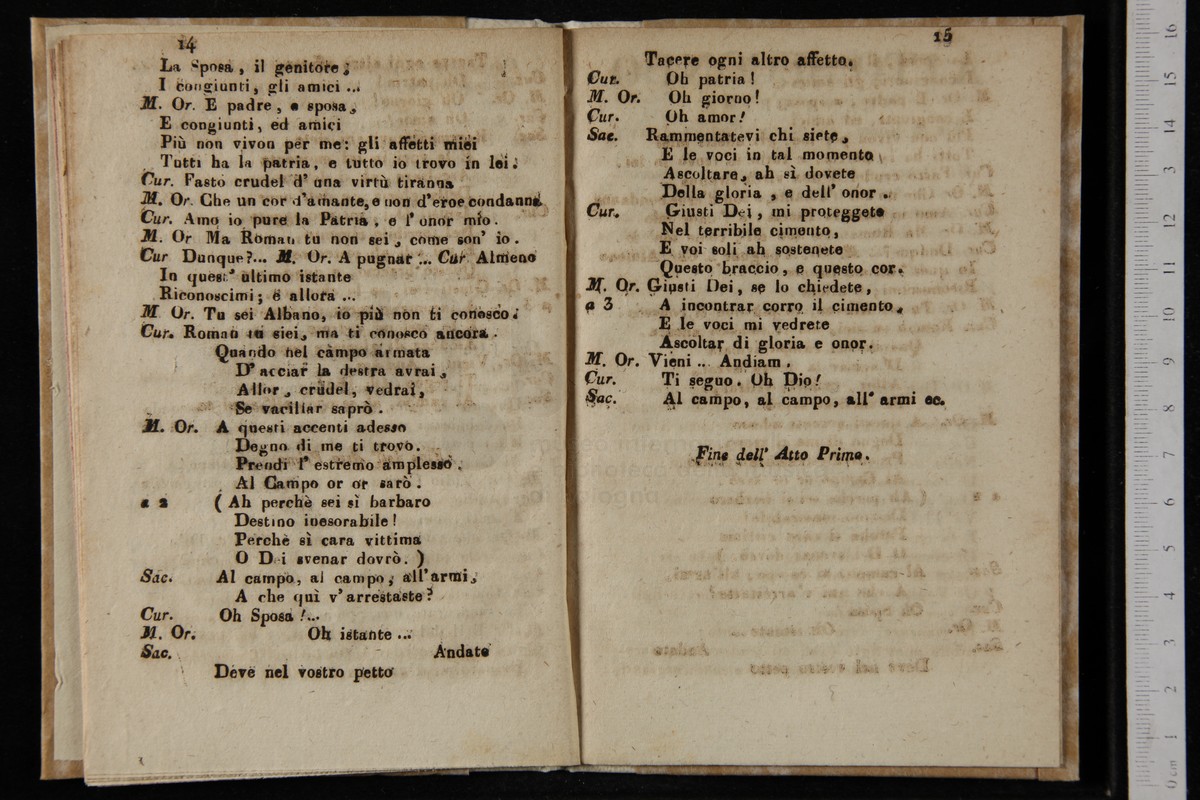 14
La Sposa, il genitore;
I congiunti, gli amici ...
M. Or. E padre, e sposa,
E congiunti, ed amici
Più non vivon per me: gli affetti miei
Tutti ha la patria, e tutto io trovo in lei.
Cur. Fasto crudel d' una virtù tiranna
M. Or. Che un cor d'amante, e non d'eroe condanna.
Cur. Amo io pure la Patria, e l' onor mio.
M. Or Ma Roman tu non sei, come son' io.
Cur Dunque?... M. Or. A pugnar ... Cur Almeno
In quest' ultimo istante
Riconoscimi; e allora ...
M Or. Tu sei Albano, io più non ti conosco.
Cur. Roman tu siei, ma ti conosco ancora.
Quando nel campo armata
D' acciar la destra avrai,
Allor, crudel, vedrai,
Se vacillar saprò.
M. Or. A questi accenti adesso
Degno di me ti trovo.
Prendi l' estremo amplesso.
Al Campo or or sarò.
a 2 ( Ah perchè sei sì barbaro
Destino inesorabile!
Perchè sì cara vittima
O Dei svenar dovrò. )
Sac. Al campo, al campo, all'armi,
A che quì v' arrestaste?
Cur. Oh Sposa!...
M. Or. Oh istante ...
Sac. Andate
Deve nel vostro petto
15
Tacere ogni altro affetto.
Cur. Oh patria!
M. Or. Oh giorno!
Cur. Oh amor!
Sac. Rammentatevi chi siete,
E le voci in tal momento
Ascoltare, ah sì dovete
Della gloria, e dell' onor.
Cur. Giusti Dei, mi proteggete
Nel terribile cimento,
E voi soli ah sostenete
Questo braccio, e questo cor.
M. Or. Giusti Dei, se lo chiedete,
a 3 A incontrar corro il cimento,
E le voci mi vedrete
Ascoltar di gloria e onor.
M. Or. Vieni .. Andiam.
Cur. Ti seguo. Oh Dio!
Sac. Al campo, al campo, all' armi ec.
Fine dell' Atto Primo.